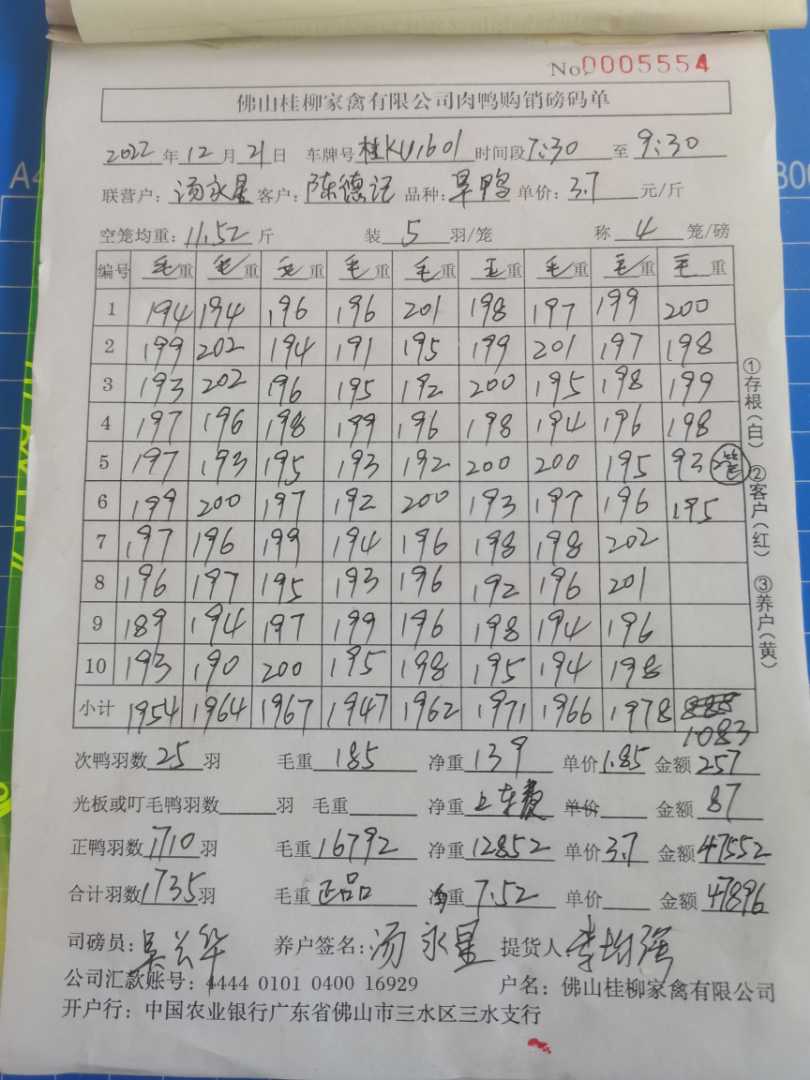 No 0005554
佛山桂柳家禽有限公司肉鸭购销磅码单
2022年12月21日 车牌号桂KU1601 时间段7:30至9:30
联营户:汤永星 客户:陈德记 品种:旱鸭 单价:3.7元/斤
空笼均重:11.52斤 装5羽/笼 称4笼/磅
编号 毛重 毛重 毛重 毛重 毛重 毛重 毛重 毛重 毛重
1 194 194 196 196 201 198 197 199 200
2 199 202 194 191 195 199 201 197 198
3 193 202 196 195 192 200 195 198 199
4 197 196 198 199 196 198 194 196 198
5 197 193 195 193 192 200 200 195 93
6 199 200 197 192 200 193 197 196 195
7 197 196 199 194 196 198 198 202
8 196 197 195 193 196 192 196 201
9 189 194 197 199 196 198 194 196
10 193 190 200 195 198 195 194 198
小计 1954 1964 1967 1947 1962 1971 1966 1978 1083
次鸭羽数25羽 毛重185 净重139 单价1.85 金额257
光板或叮毛鸭羽数 羽 毛重 净重上车费 单价 金额87
正鸭羽数1710羽 毛重16792 净重12852 单价3.7 金额47552
合计羽数1735羽 毛重正品 重7.52 单价 金额47896
司磅员:吴兴华 养户签名:汤永星 提货人李均强
公司汇款账号:4444 0101 0400 16929 户名:佛山桂柳家禽有限公司
开户行:中国农业银行广东省佛山市三水区三水支行
①存根(白) ②客户(红) ③养户(黄)